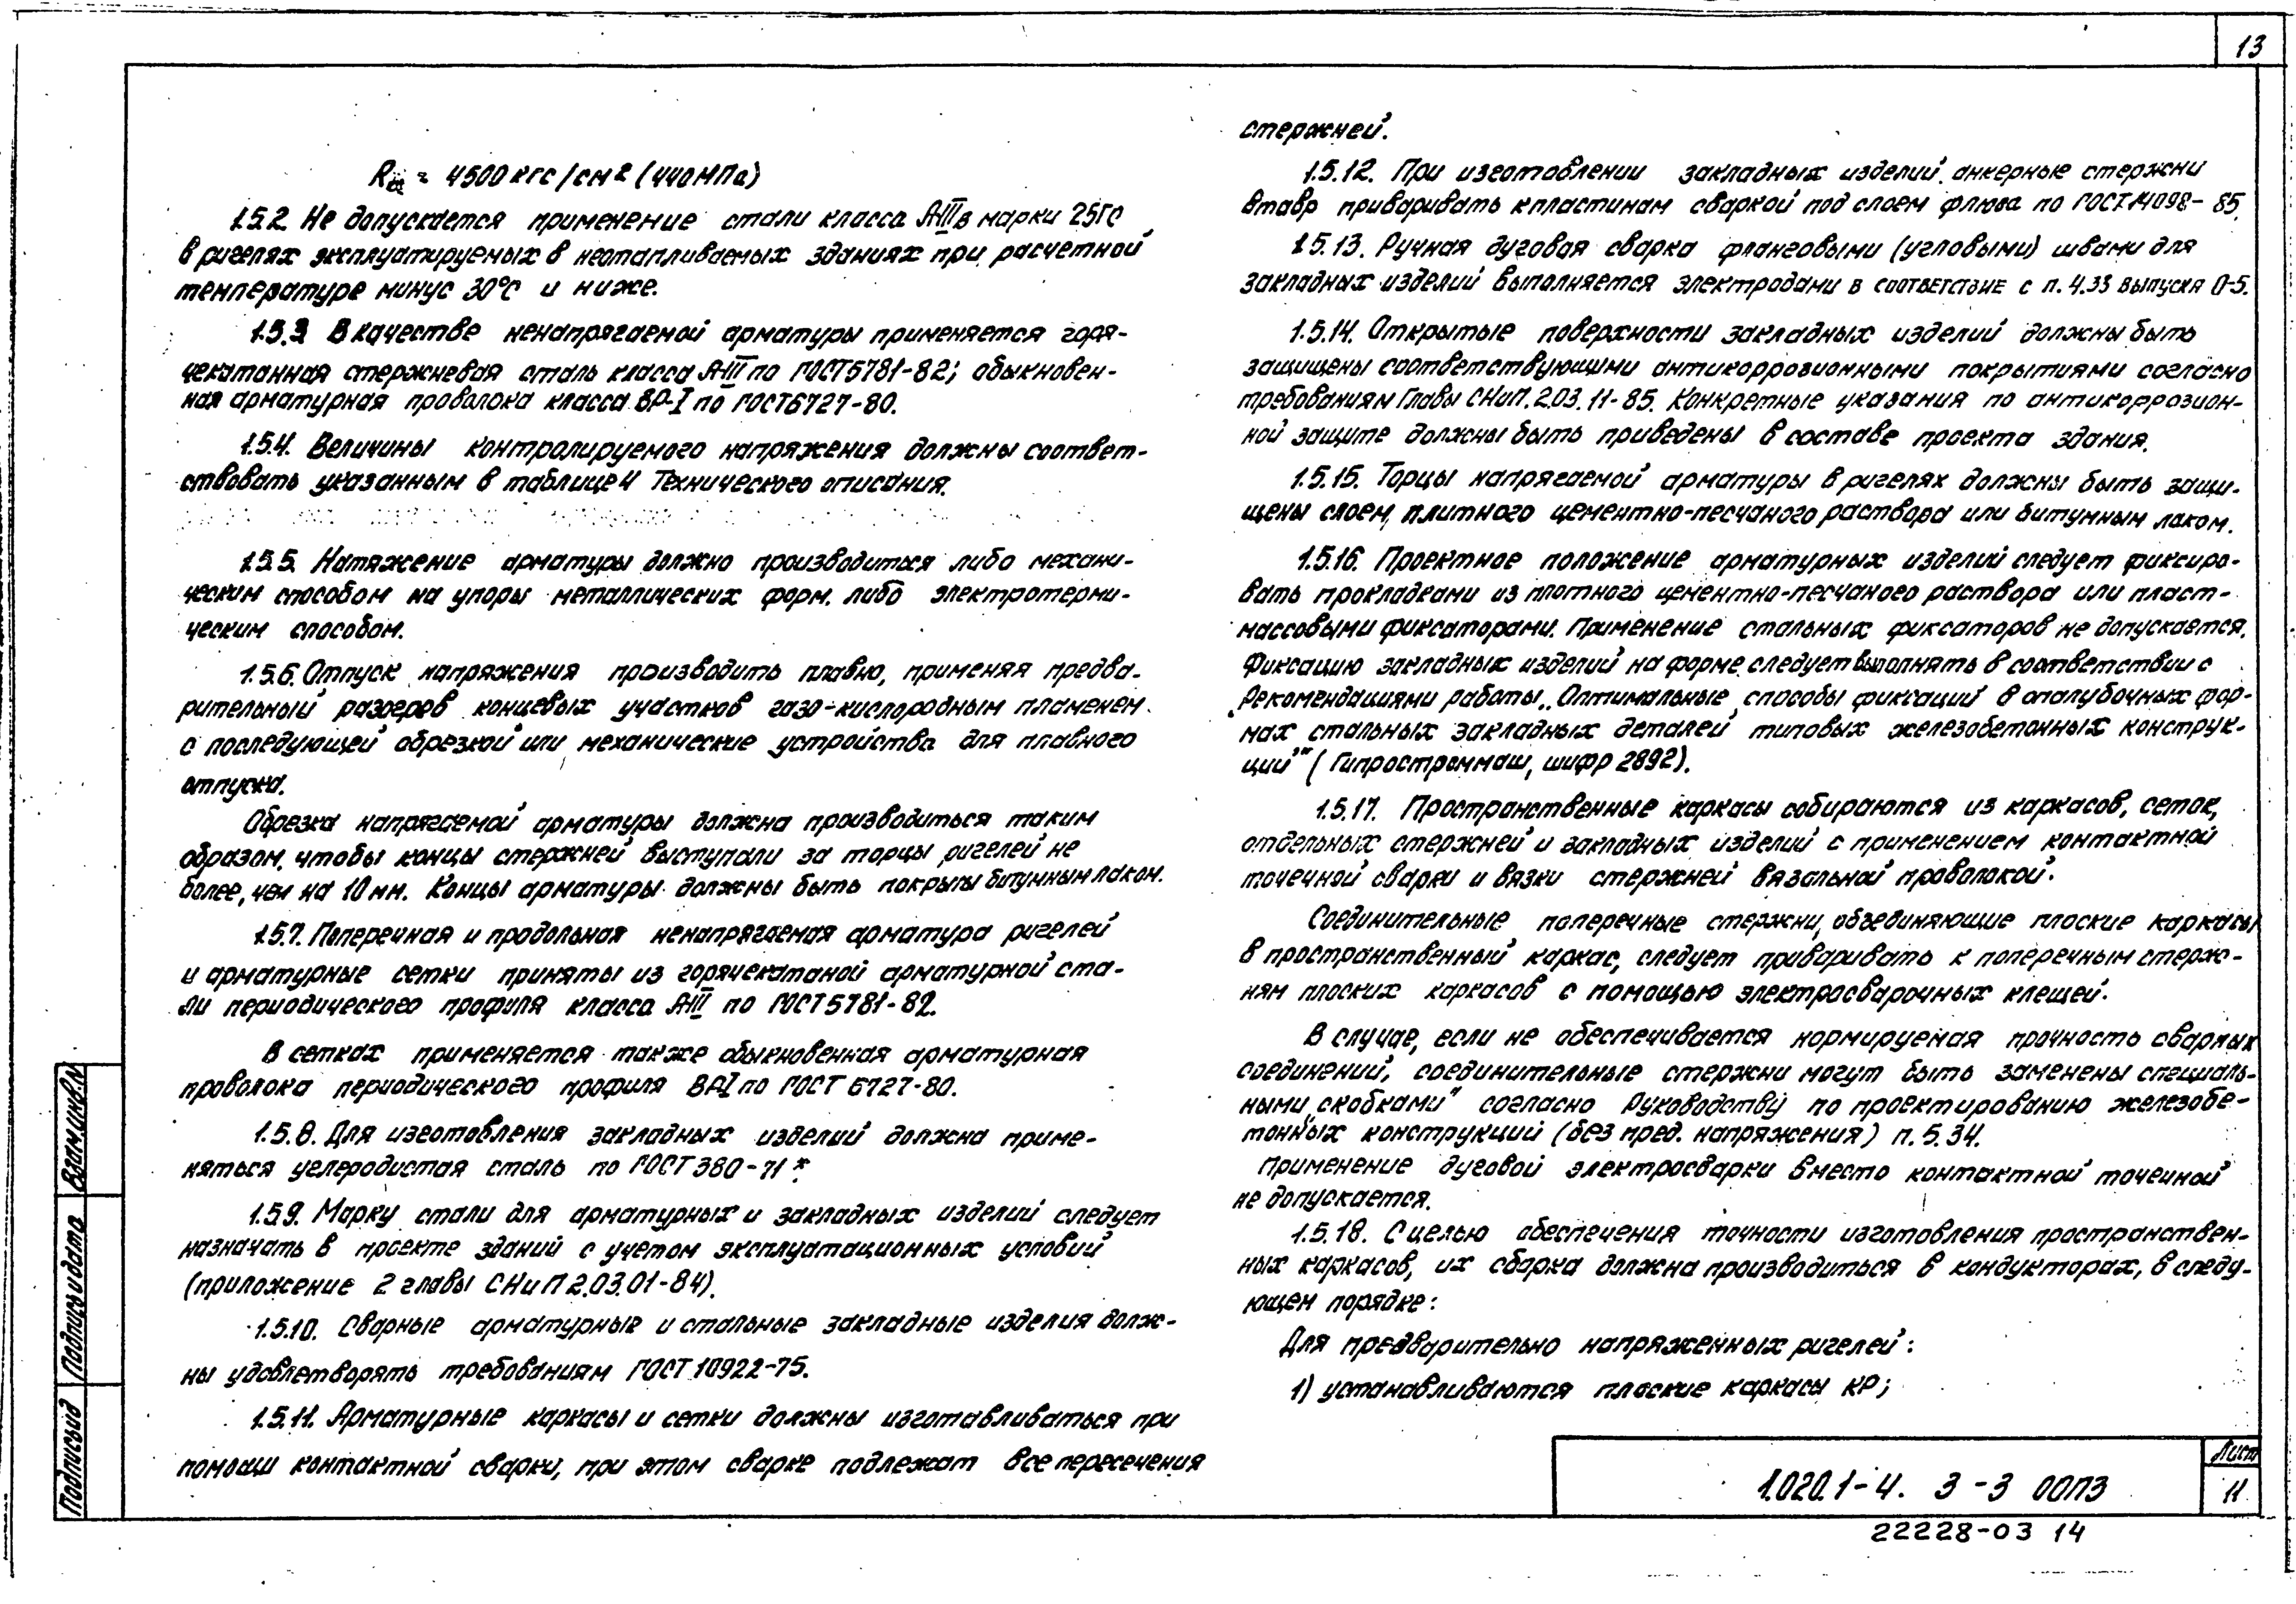 13
= 4500 кгс/см2 (440 МПа)
1.5.2. Не допускается применение стали класса А-IIIв марки 25ГС
в ригелях эксплуатируемых в неотапливаемых зданиях при расчетной
температуре минус 30°С и ниже.
1.5.3 В качестве ненапрягаемой арматуры применяется горя-
чекатанная стержневая сталь класса А-III по ГОСТ 5781-82; обыкновен-
ная арматурная проволока класса ВР-I по ГОСТ 6727-80.
1.5.4. Величины контролируемого напряжения должны соответ-
ствовать указанным в таблице 4 Технического описания.
1.5.5. Натяжение арматуры должно производиться либо механи-
ческим способом на упоры металлических форм, либо электротерми-
ческим способом.
1.5.6. Отпуск напряжения производить плавно, применяя предва-
рительный разогрев концевых участков газо-кислородным пламенем
с последующей обрезкой или механические устройства для плавного
отпуска.
Обрезка напрягаемой арматуры должна производиться таким
образом, чтобы концы стержней выступали за торцы ригелей не
более, чем на 10 мм. Концы арматуры должны быть покрыты битумным лаком.
1.5.7. Поперечная и продольная ненапрягаемая арматура ригелей
и арматурные сетки приняты из горячекатаной арматурной ста-
ли периодического профиля класса А-III по ГОСТ 5781-82.
В сетках применяется также обыкновенная арматурная
проволока периодического профиля ВР-I по ГОСТ 6727-80.
1.5.8. Для изготовления закладных изделий должна приме-
няться углеродистая сталь по ГОСТ 380-71*.
1.5.9. Марку стали для арматурных и закладных изделий следует
назначать в проекте зданий с учетом эксплуатационных условий
(приложение 2 главы СНиП 2.03.01-84).
1.5.10. Сварные арматурные и стальные закладные изделия долж-
ны удовлетворять требованиям ГОСТ 10922-75.
1.5.11. Арматурные каркасы и сетки должны изготавливаться при
помощи контактной сварки, при этом сварке подлежат все пересечения
стержней.
1.5.12. При изготовлении закладных изделий анкерные стержни
втавр приваривать к пластинам сваркой под слоем флюса по ГОСТ 14098-85.
1.5.13. Ручная дуговая сварка фланговыми (угловыми) швами для
закладных изделий выполняется электродами в соответствие с п. 4.33 выпуска 0-5.
1.5.14. Открытые поверхности закладных изделий должны быть
защищены соответствующими антикоррозионными покрытиями согласно
требованиям Главы СНиП.2.03.11-85. Конкретные указания по антикоррозион-
ной защите должны быть приведены в составе проекта здания.
1.5.15. Торцы напрягаемой арматуры в ригелях должны быть защи-
щены слоем плитного цементно-песчаного раствора или битумным лаком.
1.5.16. Проектное положение арматурных изделий следует фиксиро-
вать прокладками из плотного цементно-песчаного раствора или пласт-
массовыми фиксаторами. Применение стальных фиксаторов не допускается.
Фиксацию закладных изделий на форме следует выполнять в соответствии с
Рекомендациями работы „Оптимальные способы фиксаций в опалубочных фор-
мах стальных закладных деталей типовых железобетонных конструк-
ций" (Гипростроммаш, шифр 2892).
1.5.17. Пространственные каркасы собираются из каркасов, сеток,
отдельных стержней и закладных изделий с применением контактной
точечной сварки и вязки стержней вязальной проволокой.
Соединительные поперечные стержни, объединяющие плоские каркасы
в пространственный каркас, следует приваривать к поперечным стерж-
ням плоских каркасов с помощью электросварочных клещей.
В случае, если не обеспечивается нормируемая прочность сварных
соединений, соединительные стержни могут быть заменены специаль-
ными „скобками" согласно Руководству по проектированию железобе-
тонных конструкций (без пред. напряжения) п. 5.34.
Применение дуговой электросварки вместо контактной точечной
не допускается.
1.5.18. С целью обеспечения точности изготовления пространствен-
ных каркасов, их сборка должна производиться в кондукторах, в следу-
ющем порядке:
Для предварительно напряженных ригелей:
1) устанавливаются плоские каркасы КР;
Взам.инв.N
Подпись и дата
Подпись ид
1.020.1-4. 3-3 00ПЗ
Лист
11
22228-03 14